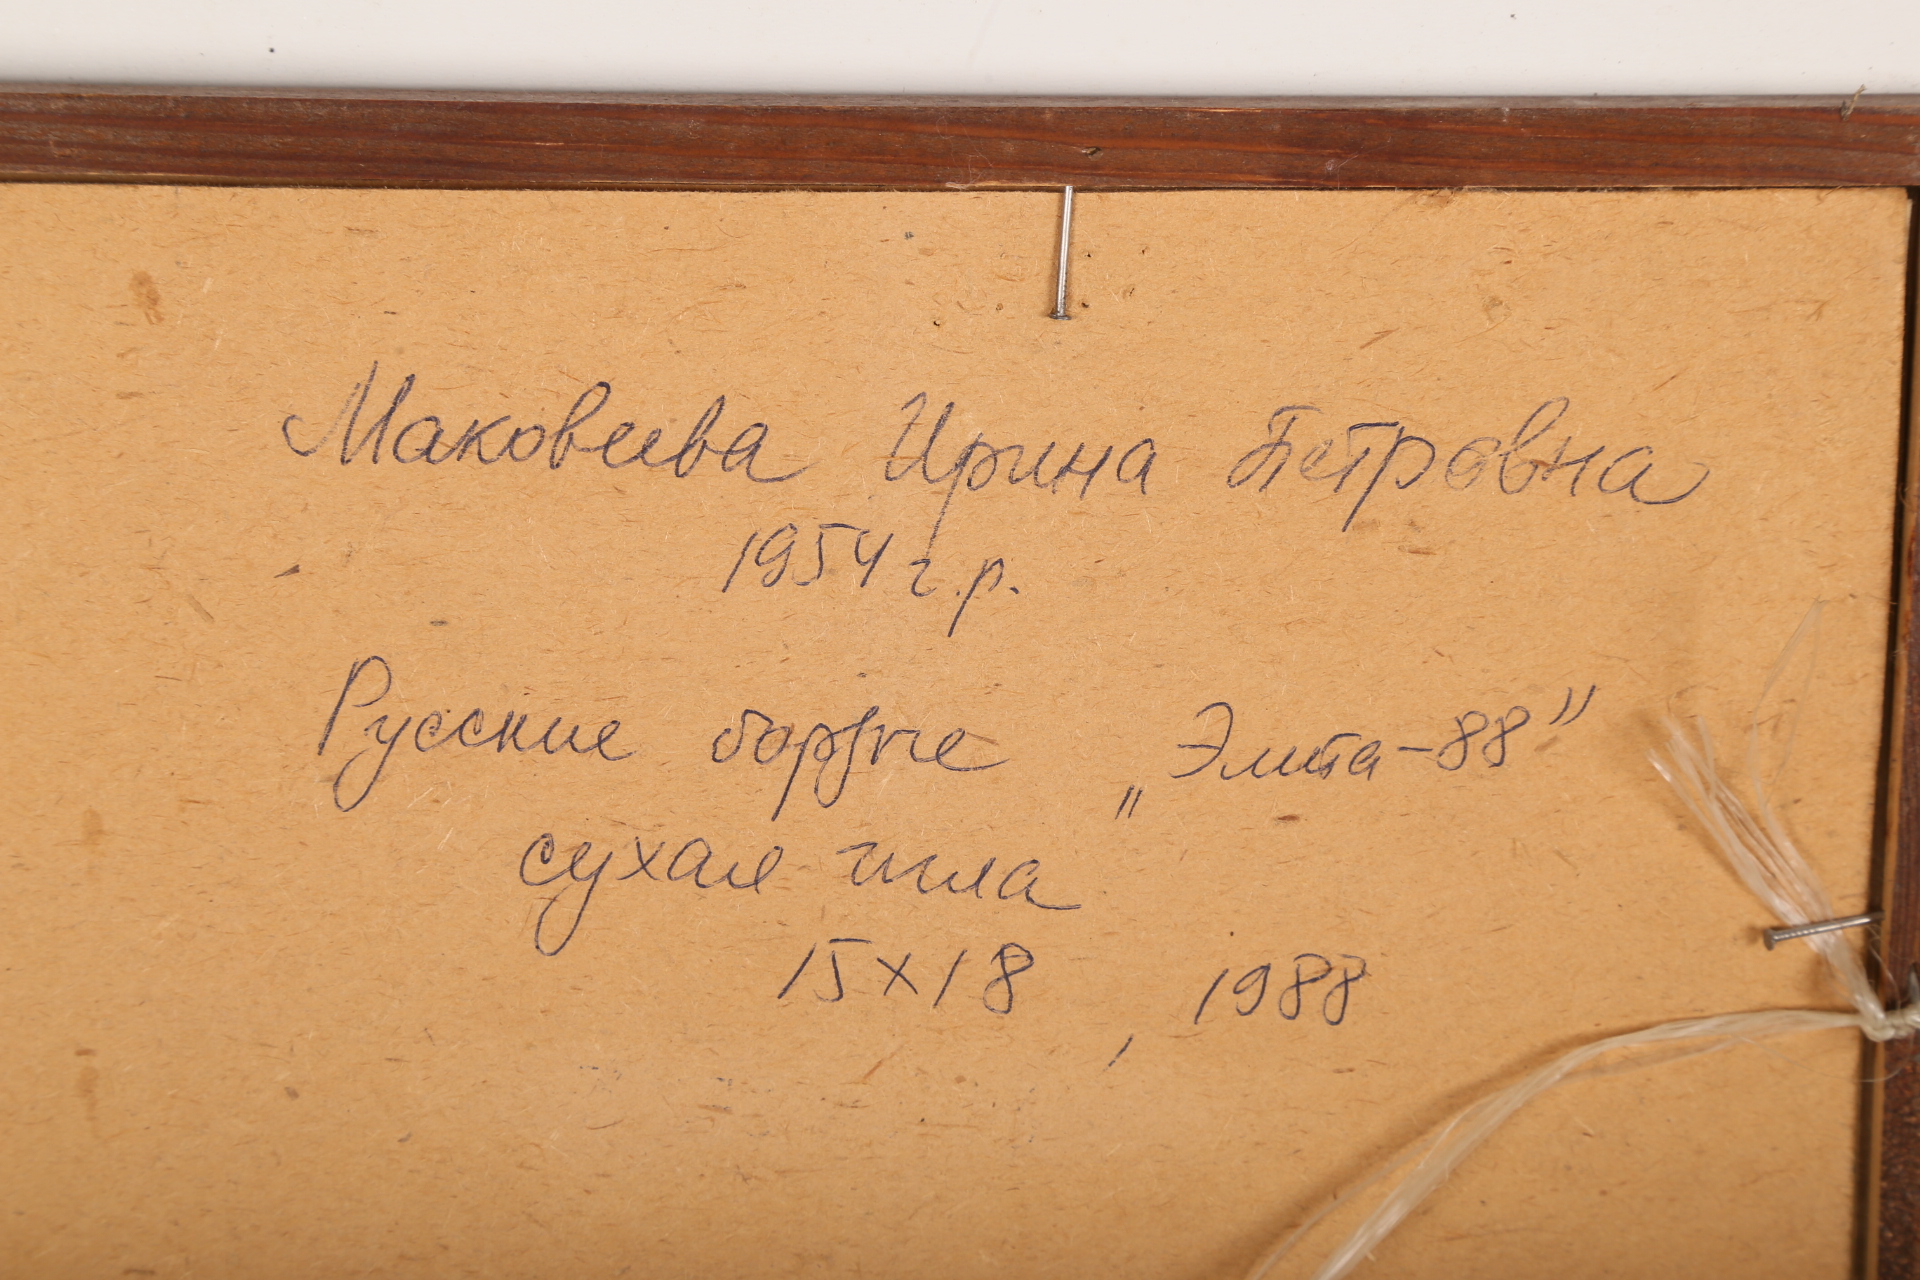 Маковеева Ирина Петровна
1954 г.р.
Русские борзые „Элита-88"
сухая игла
15x18, 1988